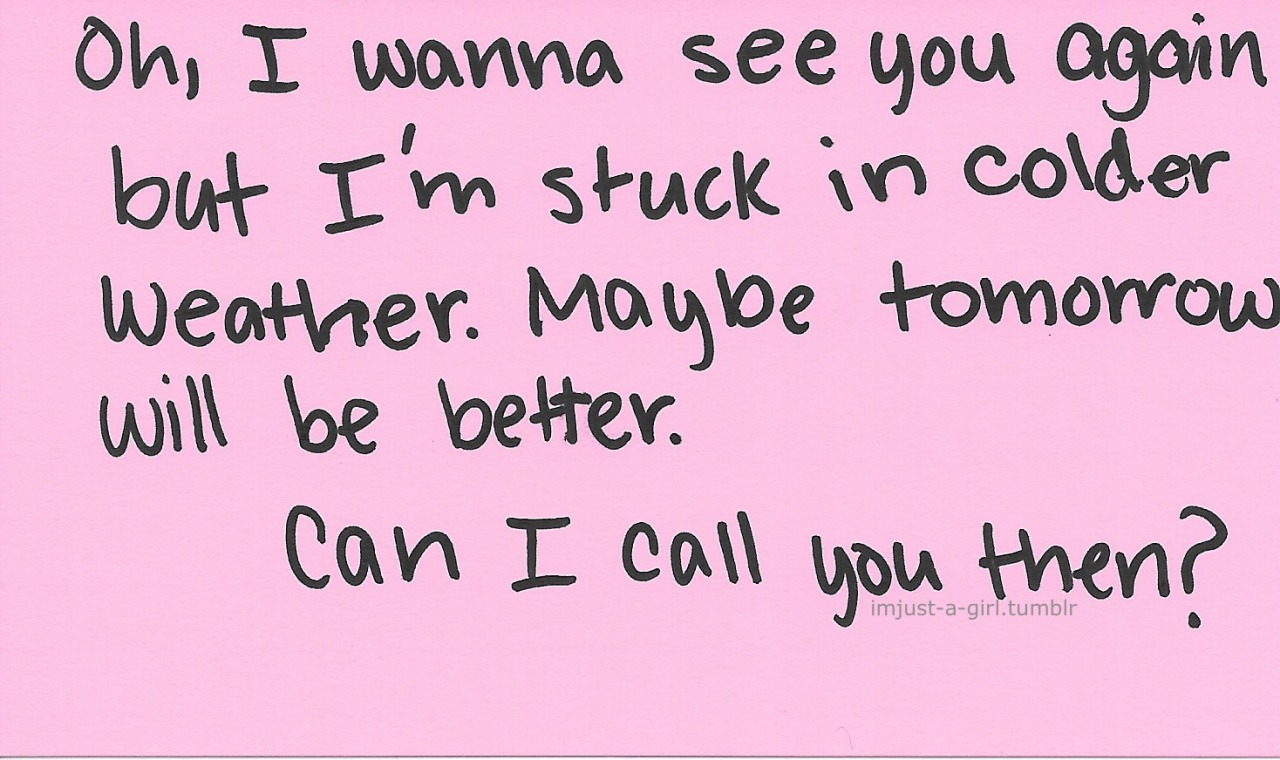 Oh, I wanna see you again
but I'm stuck in colder
Weather. Maybe tomorrow
will be better.
Can I call you then?
imjust-a-girl.tumblr